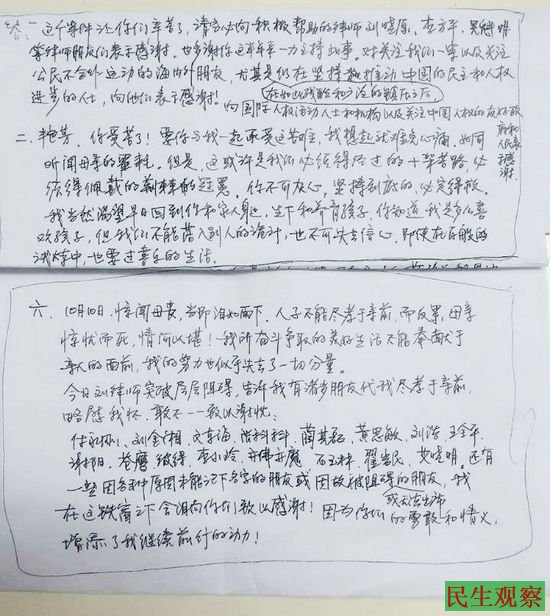 一 这个案件让你们辛苦了，请务必向积极帮助的律师刘晓原、李方平、吴魁明
等律师朋友们表示感谢。也感谢你这半年来一力主持此事。对关注我们一案以及关注
公民不合作运动的海内外朋友，尤其是仍在坚持推动中国的民主和人权
在如此残酷和方泛的镇压之后，
进步的人士，向他们表示感谢！向国际人权活动人士和机构以及关注中国人权的友好政
府和人民表示感谢
二、艳芳，你受苦了！要你与我一起承受这苦难，我想起就难免心痛，如同
听闻母亲的噩耗。但是，这或许是我们必须得经过的十架苦路，必
须得佩戴的荆棘的冠冕。你不可灰心，坚持到底的，必定得救。
我当然渴望早日回到你和家人身边，生下和养育孩子，你知道我是多么喜
欢孩子，但我们不能落入别人的诡计，也不可失去信心，即使在百般的
试炼中，也要过喜乐的生活。
六、10月10日，惊闻母丧，当即泪如雨下，人子不能尽孝于亲前，而反累母亲
惊忧而死，情何以堪！我所奋斗争取的美好生活不能奉献于
亲人的面前，我的努力也似乎失去了一切分量。
今日刘律师突破层层阻碍，告诉我有诸多朋友代我尽孝于亲前，
略慰我怀，敢不一一致以谢忱：
黄思敏、刘浩、王金平、
翟岩民、艾晓明，还有
一些因各种原因未能记下名字的朋友或因故被阻碍的朋友，我
或无法出席
在这铁窗之下会谨向你们致以感谢！因为你们的勇敢和情义，
增添了我继续前行的动力！
民生观察